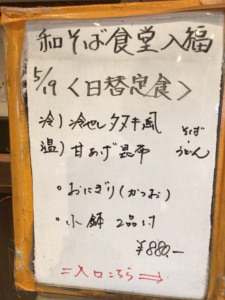 和そば食堂入福
5/19 <日替定食>
冷) 冷やしタヌキ風
温) 甘あげ昆布
そば・うどん
・おにぎり(かつお)
・小鉢 2品付
¥880.-
⇐入口こちら⇒